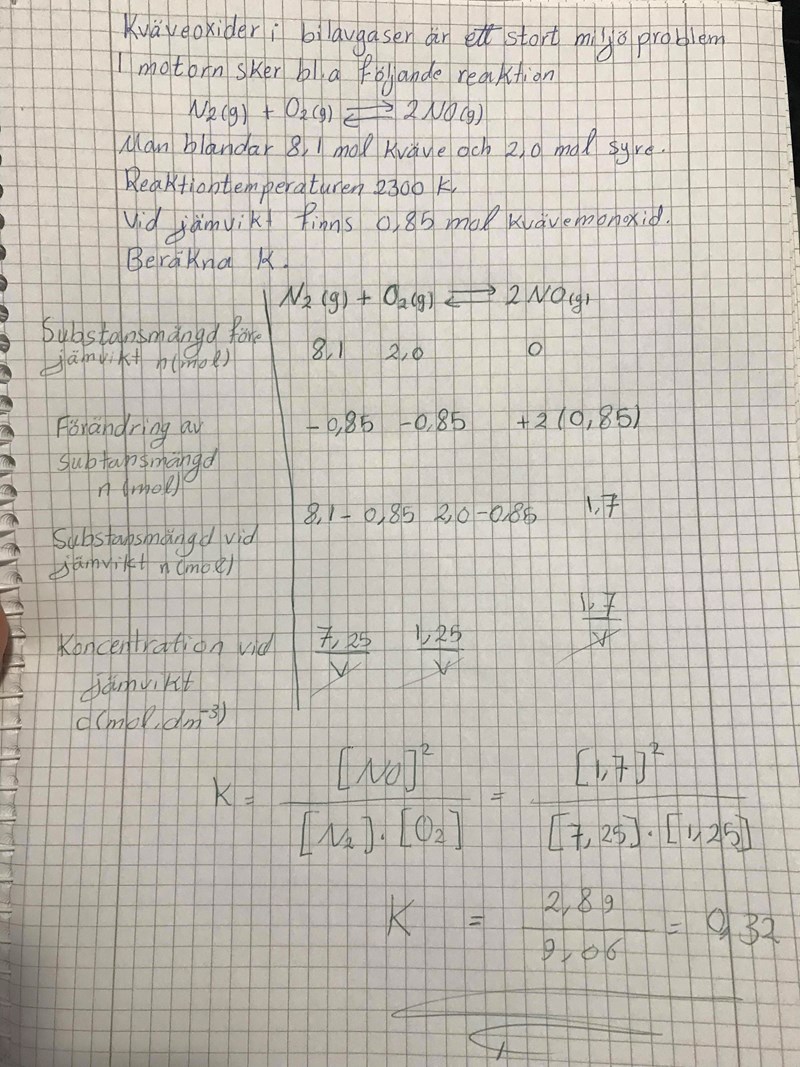 Kväveoxider i bilavgaser är ett stort miljö problem
I motorn sker bl.a följande reaktion
N2(g) + O2(g) ⇌ 2NO(g)
Man blandar 8,1 mol kväve och 2,0 mol syre.
Reaktiontemperaturen 2300 K.
Vid jämvikt finns 0,85 mol kvävemonoxid.
Beräkna K.
N2(g) + O2(g) ⇌ 2NO(g)
Substansmängd före
jämvikt n(mol) 8,1 2,0 0
Förändring av -0,85 -0,85 +2(0,85)
subtansmängd
n (mol)
8,1 - 0,85 2,0-0,85 1,7
Substansmängd vid
jämvikt n(mol)
Koncentration vid 7,25/V 1,25/V 1,7/V
jämvikt
c(mol.dm-3)
K = [NO]2 / [N2].[O2] = [1,7]2 / [7,25].[1,25]
K = 2,89 / 9,06 = 0,32